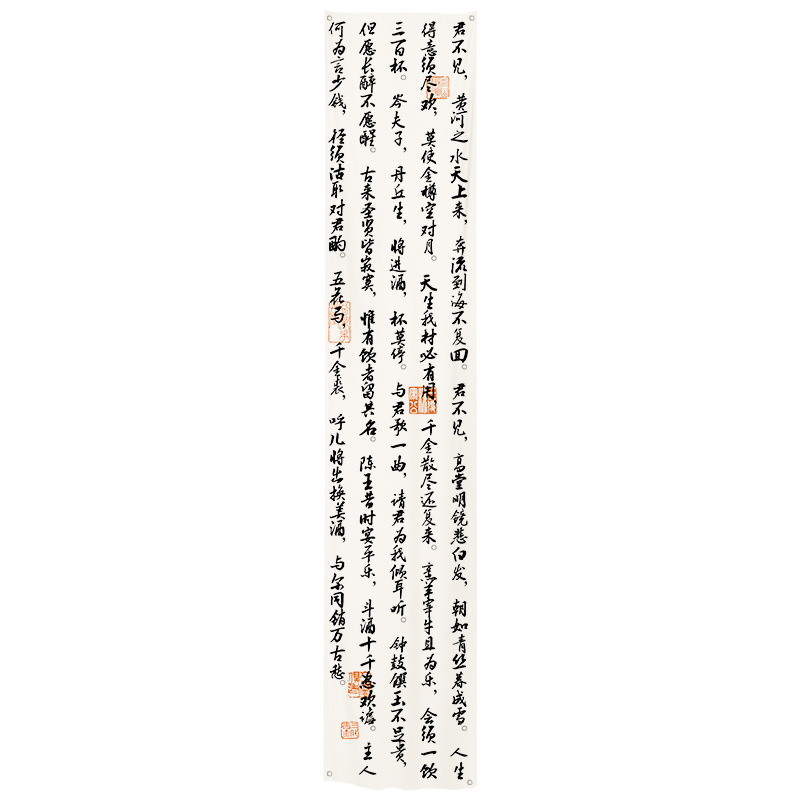 君不见，黄河之水天上来，奔流到海不复回。君不见，高堂明镜悲白发，朝如青丝暮成雪。人生
得意须尽欢，莫使金樽空对月。天生我材必有用，千金散尽还复来。烹羊宰牛且为乐，会须一饮
三百杯。岑夫子，丹丘生，将进酒，杯莫停。与君歌一曲，请君为我倾耳听。钟鼓馔玉不足贵，
但愿长醉不愿醒。古来圣贤皆寂寞，惟有饮者留其名。陈王昔时宴平乐，斗酒十千恣欢谑。主人
何为言少钱，径须沽取对君酌。五花马，千金裘，呼儿将出换美酒，与尔同销万古愁。